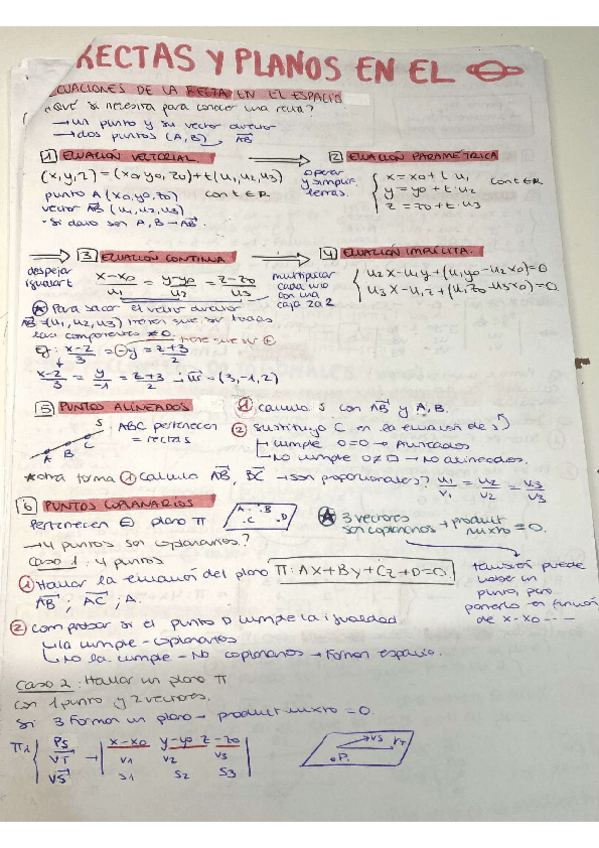 RECTAS Y PLANOS EN EL
ECUACIONES DE LA RECTA EN EL ESPACIO
¿Qué se necesita para conocer una recta?
→ un punto y su vector director
→ dos puntos (A,B) → AB
1 ECUACIÓN VECTORIAL
(x,y,z) = (x0,y0,z0)+t(u1,u2,u3)
punto A (x0,y0,z0) con t∈R
vector AB (u1,u2,u3)
- Si dan A,B → AB
operar y simplif.
2 ECUACIÓN PARAMÉTRICA
x = x0 + t·u1
y = y0 + t·u2 con t∈R
z = z0 + t·u3
despejar igualar t
3 ECUACIÓN CONTINUA
x-x0/u1 = y-y0/u2 = z-z0/u3
multiplicar cada uno con una caja 2 a 2
4 ECUACIÓN IMPLÍCITA
u2x-u1y+(u1y0-u2x0)=0
u3x-u1z+(u1z0-u3x0)=0
Para sacar el vector director
AB=(u1,u2,u3) tienen que ser todas
las componentes ≠0. tiene que ser +
Ej: x-2/3 = -y = z+3/2
x-2/3 = y/-1 = z+3/2 → u = (3,-1,2)
5 PUNTOS ALINEADOS
A B C S : ABC pertenecen = rectas
1 Calculo S con AB y A, B.
2 Sustituyo C en la ecuación de s
Cumple 0=0 → Alineados
No cumple 0≠0 → No alineados.
*otra forma 1 Calculo AB, BC → son proporcionales? u1/v1 = u2/v2 = u3/v3
6 PUNTOS COPLANARIOS
Pertenecen = plano π
A · · B · C · D
3 vectores son coplanarios → product mixto = 0.
→ 4 puntos son coplanarios?
Caso 1: 4 puntos
1 Hallar la ecuación del plano π: Ax+By+Cz+D=0
AB ; AC ; A.
también puede haber un punto, pero ponerlo en función de x-x0 ...
2 Comprobar si el punto D cumple la igualdad
la cumple - coplanarios
No la cumple - No coplanarios → Forman espacio.
Caso 2: Hallar un plano π
con 1 punto y 2 vectores.
Si 3 forman un plano → product mixto = 0.
π1 { PS VT VS → | x-x0 y-y0 z-z0
v1 v2 v3
s1 s2 s3 |
VS VT
P.